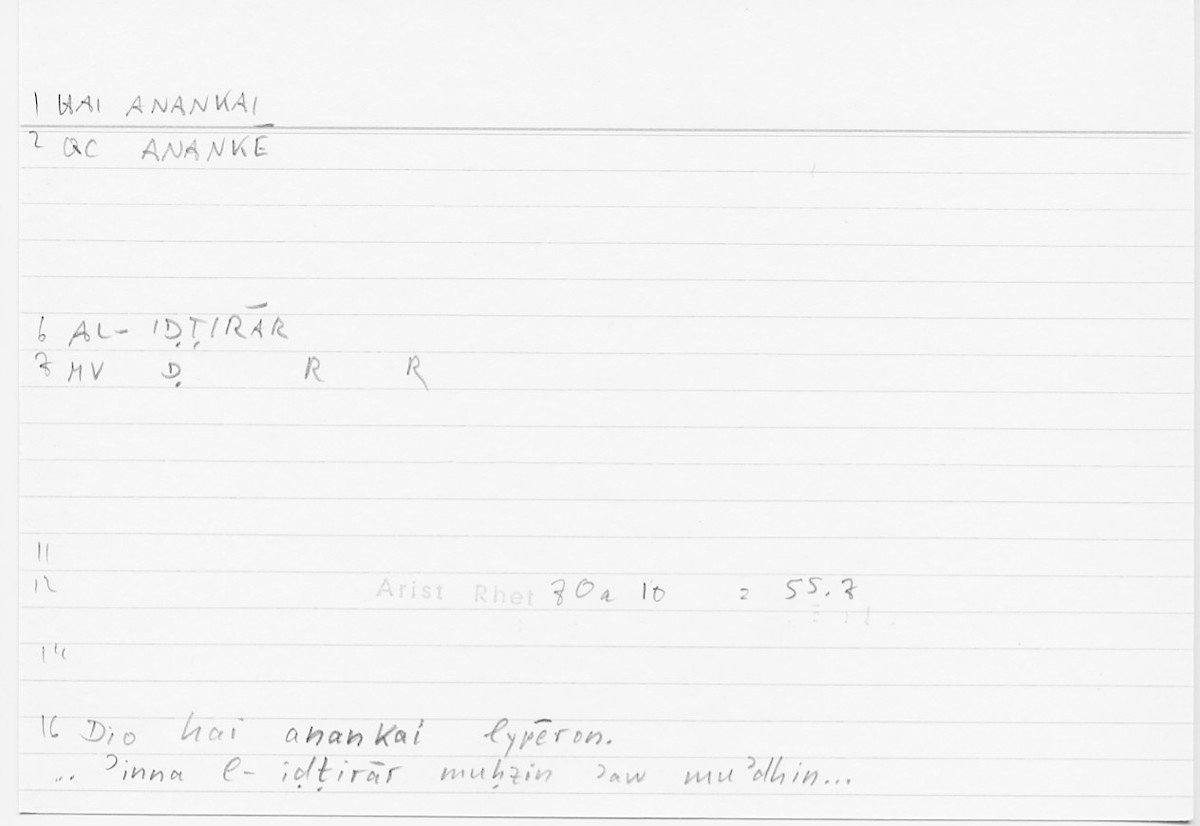 1 HAI ANANKAI
2 QC ANANKĒ
6 AL- IḌṬIRĀR
7 MV Ḍ R R
11
12 Arist Rhet 70a 10 = 55.7
14
16 Dio hai anankai lypēron.
... ʾinna l- iḍṭirār muḥzin ʾaw muʾdhin...